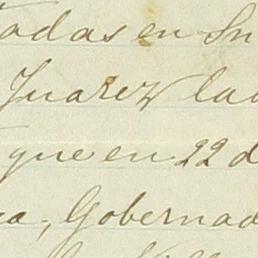 tadas en
Juarez la
que en 22 d
Gobernad